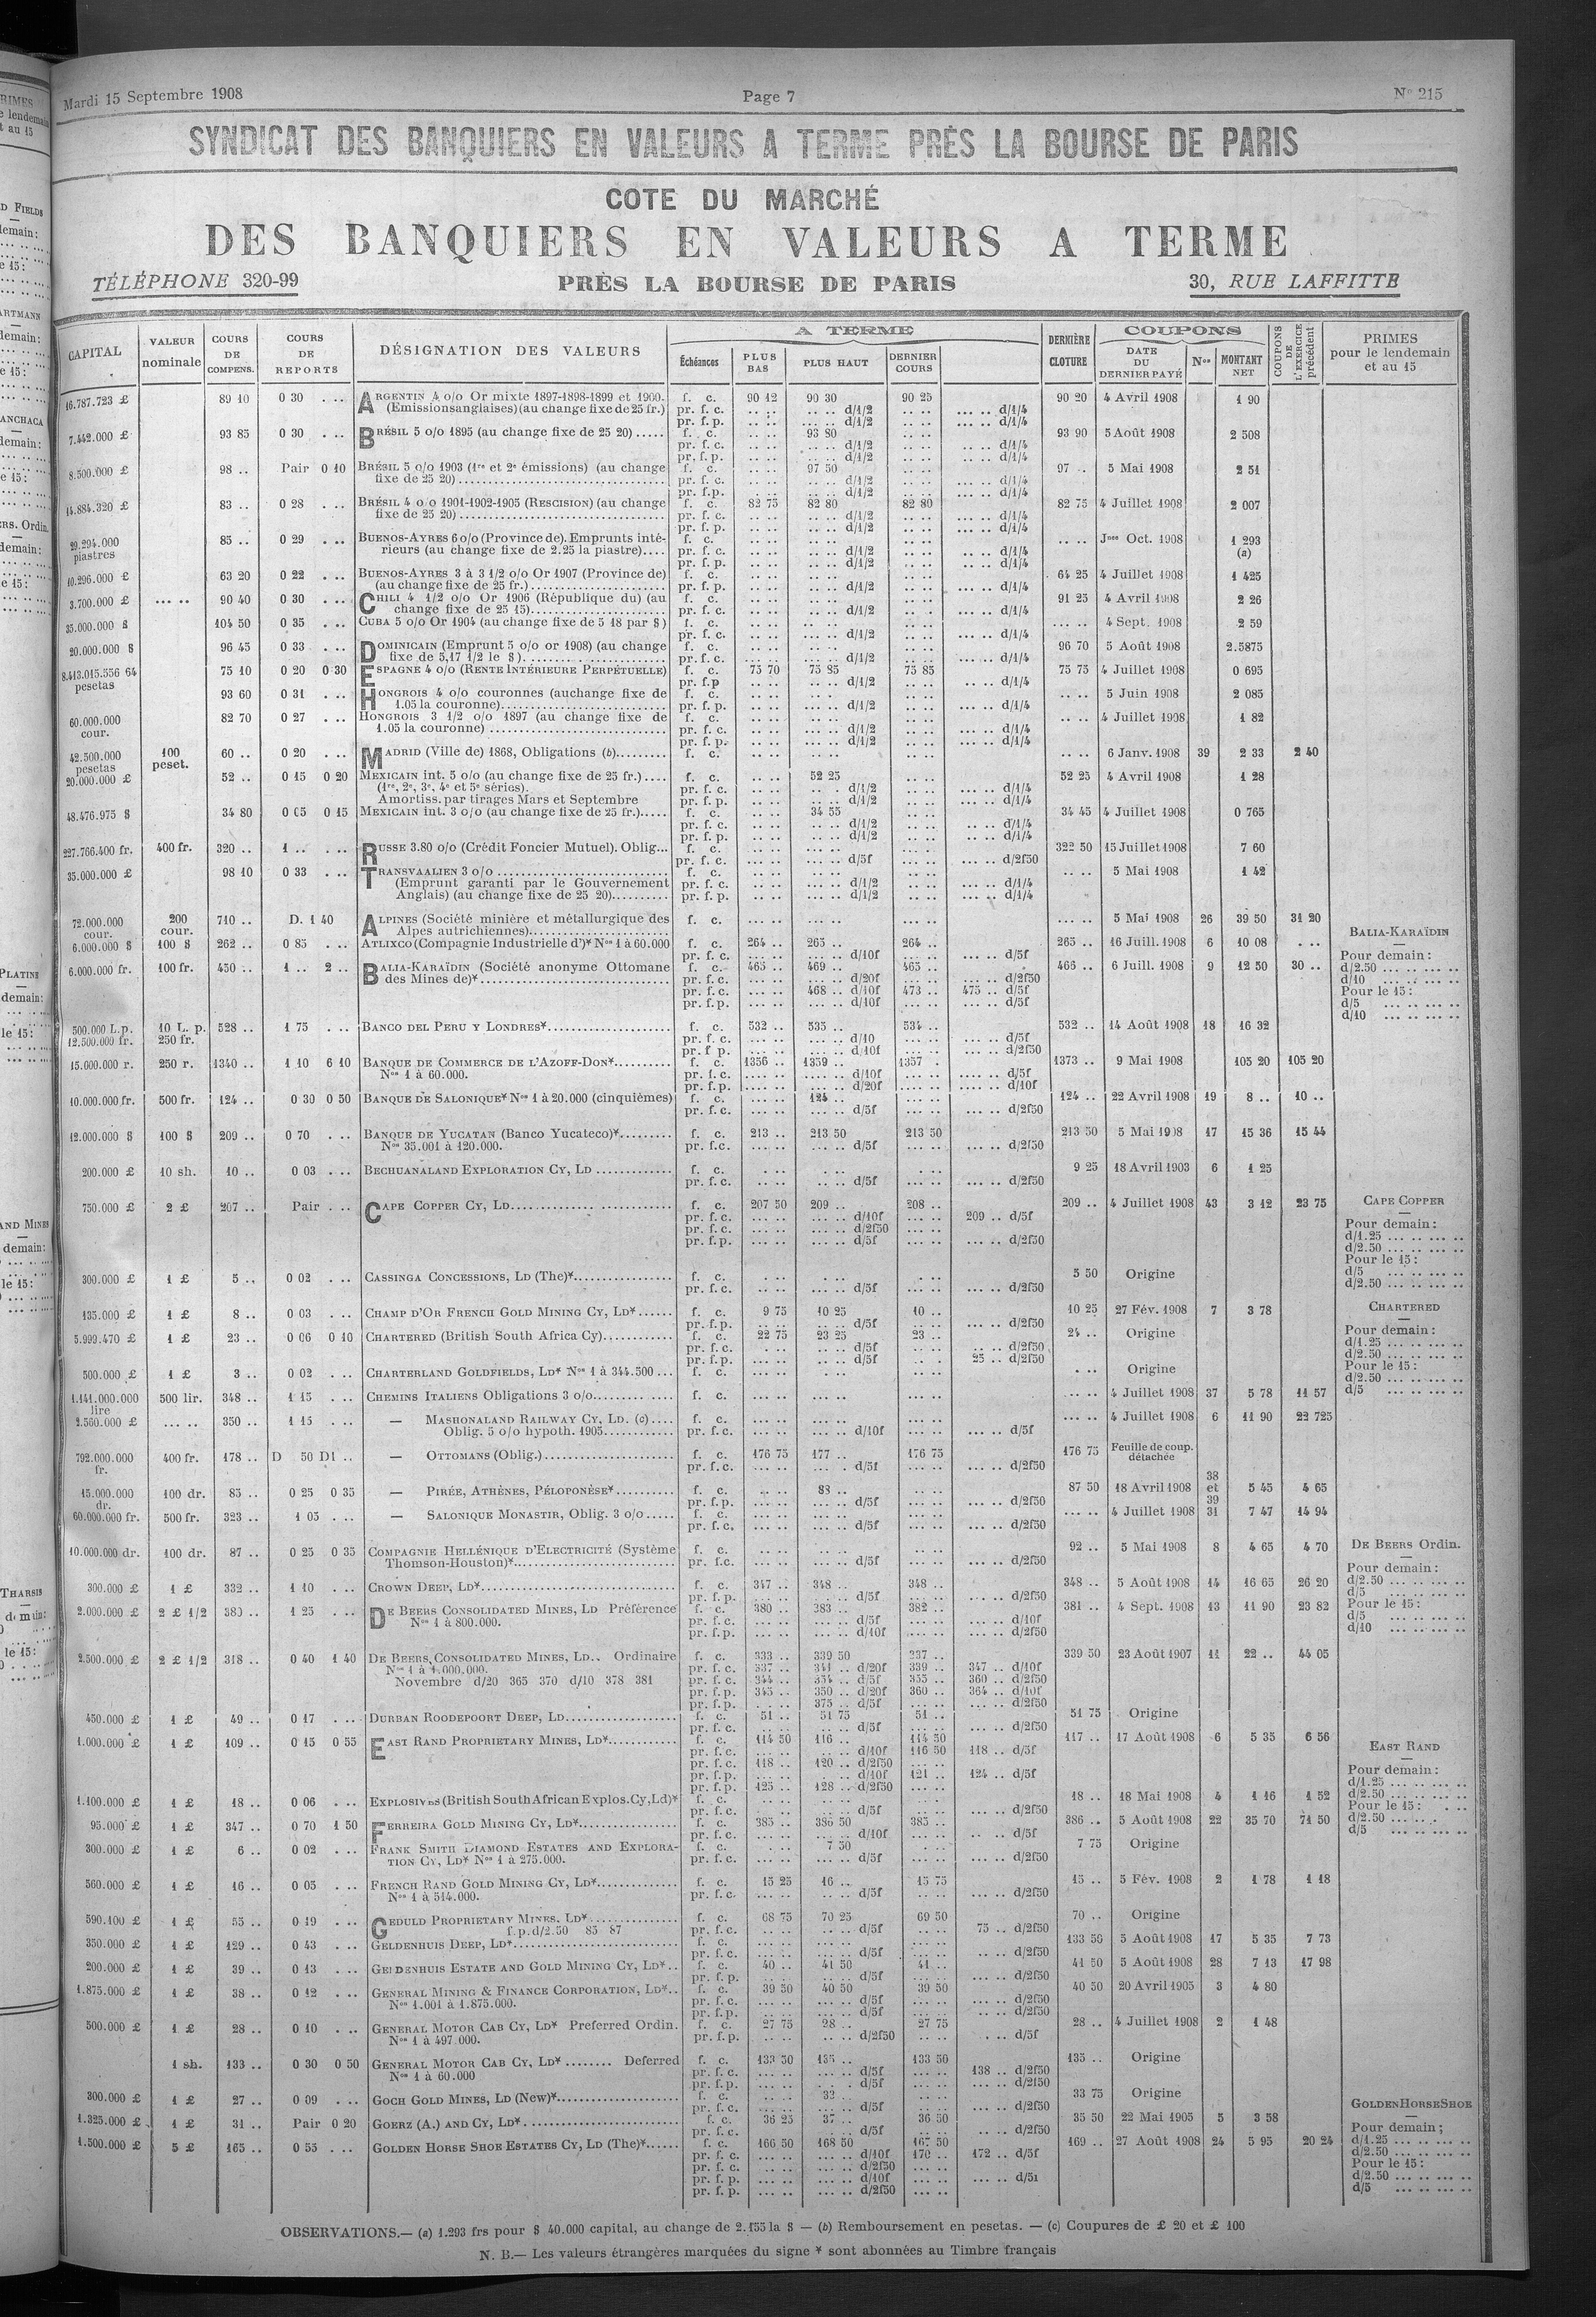 Mardi 15 Septembre 1908 Page 7 N° 215
SYNDICAT DES BANQUIERS EN VALEURS A TERME PRÈS LA BOURSE DE PARIS
COTE DU MARCHÉ
DES BANQUIERS EN VALEURS A TERME
TÉLÉPHONE 320-99 PRÈS LA BOURSE DE PARIS 30, RUE LAFFITTE
CAPITAL VALEUR nominale COURS DE COMPENS. COURS DE REPORTS DÉSIGNATION DES VALEURS A TERME Échéances PLUS BAS PLUS HAUT DERNIER COURS DERNIÈRE CLOTURE COUPONS DATE DU DERNIER PAYÉ Nos MONTANT NET COUPONS DE L'EXERCICE précédent PRIMES pour le lendemain et au 15
16.787.723 £ 89 10 0 30 . .. ARGENTIN 4 o/o Or mixte 1897-1898-1899 et 1900. f. c. 90 12 90 30 90 25 90 20 4 Avril 1908 1 90
(Emissions anglaises) (au change fixe de 25 fr.) pr. f. c. d/1/2 d/1/4
pr. f. p. d/1/2 d/1/4
7.442.000 £ 93 85 0 30 . .. BRÉSIL 5 o/o 1895 (au change fixe de 25 20) f. c. 93 80 93 90 5 Août 1908 2 508
pr. f. c. d/1/2 d/1/4
pr. f. p. d/1/2 d/1/4
8.500.000 £ 98 .. Pair 0 10 BRÉSIL 5 o/o 1903 (1re et 2e émissions) (au change f. c. 97 50 97 .. 5 Mai 1908 2 51
fixe de 25 20) pr. f. c. d/1/2 d/1/4
pr. f. p. d/1/2 d/1/4
14.884.320 £ 83 .. 0 28 . .. BRÉSIL 4 o/o 1901-1902-1905 (RESCISION) (au change f. c. 82 75 82 80 82 80 82 75 4 Juillet 1908 2 007
fixe de 25 20) pr. f. c. d/1/2 d/1/4
pr. f. p. d/1/2 d/1/4
29.294.000 piastres 85 .. 0 29 . .. BUENOS-AYRES 6 o/o (Province de). Emprunts inté- f. c. Jnce Oct. 1908 1 293 (a)
rieurs (au change fixe de 2.25 la piastre) pr. f. c. d/1/2 d/1/4
pr. f. p. d/1/2 d/1/4
10.296.000 £ 63 20 0 22 . .. BUENOS-AYRES 3 à 3 1/2 o/o Or 1907 (Province de) f. c. 64 25 4 Juillet 1908 1 425
(au change fixe de 25 fr.) pr. f. p. d/1/2 d/1/4
3.700.000 £ ... .. 90 40 0 30 . .. CHILI 4 1/2 o/o Or 1906 (République du) (au f. c. 91 25 4 Avril 1908 2 26
change fixe de 25 15) pr. f. c. d/1/2 d/1/4
35.000.000 $ 104 50 0 35 . .. CUBA 5 o/o Or 1904 (au change fixe de 5 18 par $) f. c. 4 Sept. 1908 2 59
pr. f. c. d/1/2 d/1/4
20.000.000 $ 96 45 0 33 . .. DOMINICAIN (Emprunt 5 o/o or 1908) (au change f. c. 96 70 5 Août 1908 2.5875
fixe de 5,17 1/2 le $). pr. f. c. d/1/2 d/1/4
8.413.015.556 64 pesetas 75 10 0 20 0 30 ESPAGNE 4 o/o (RENTE INTÉRIEURE PERPÉTUELLE) f. c. 75 70 75 85 75 85 75 75 4 Juillet 1908 0 695
pr. f. p d/1/2 d/1/4
93 60 0 31 . .. HONGROIS 4 o/o couronnes (au change fixe de f. c. 5 Juin 1908 2 085
1.05 la couronne) pr. f. p. d/1/2 d/1/4
60.000.000 cour. 82 70 0 27 . .. HONGROIS 3 1/2 o/o 1897 (au change fixe de f. c. 4 Juillet 1908 1 82
1.05 la couronne) pr. f. c. d/1/2 d/1/4
pr. f. p. d/1/2 d/1/4
42.500.000 pesetas 100 peset. 60 .. 0 20 . .. MADRID (Ville de) 1868, Obligations (b) f. c. 6 Janv. 1908 39 2 33 2 40
20.000.000 £ 52 .. 0 15 0 20 MEXICAIN int. 5 o/o (au change fixe de 25 fr.) f. c. 52 25 52 25 4 Avril 1908 1 28
(1re, 2e, 3e, 4e et 5e séries). pr. f. c. d/1/2 d/1/4
Amortiss. par tirages Mars et Septembre pr. f. p. d/1/2 d/1/4
48.476.975 $ 34 80 0 05 0 15 MEXICAIN int. 3 o/o (au change fixe de 25 fr.) f. c. 34 55 34 45 4 Juillet 1908 0 765
pr. f. c. d/1/2 d/1/4
pr. f. p. d/1/2 d/1/4
227.766.400 fr. 400 fr. 320 .. 1 .. . .. RUSSE 3.80 o/o (Crédit Foncier Mutuel). Oblig... f. c. 322 50 15 Juillet 1908 7 60
pr. f. c. d/5f d/2f50
35.000.000 £ 98 10 0 33 . .. TRANSVAALIEN 3 o/o f. c. 5 Mai 1908 1 42
(Emprunt garanti par le Gouvernement pr. f. c. d/1/2 d/1/4
Anglais) (au change fixe de 25 20) pr. f. p. d/1/2 d/1/4
72.000.000 cour. 200 cour. 710 .. D. 1 40 ALPINES (Société minière et métallurgique des f. c. 5 Mai 1908 26 39 50 31 20
Alpes autrichiennes)
6.000.000 $ 100 $ 262 .. 0 85 . .. ATLIXCO (Compagnie Industrielle d')* Nos 1 à 60.000 f. c. 264 .. 265 .. 264 .. 265 .. 16 Juill. 1908 6 10 08 . ..
pr. f. c. d/10f d/5f
6.000.000 fr. 100 fr. 450 .. 1 .. 2 .. BALIA-KARAÏDIN (Société anonyme Ottomane f. c. 465 .. 469 .. 465 .. 466 .. 6 Juill. 1908 9 12 50 30 ..
des Mines de)* pr. f. c. d/20f d/2f50
pr. f. c. 468 .. d/10f 473 .. 475 .. d/5f
pr. f. p. d/10f d/5f
BALIA-KARAÏDIN
Pour demain :
d/2.50
d/10
Pour le 15 :
d/5
d/10
500.000 L.p. 12.500.000 fr. 10 L. p. 250 fr. 528 .. 1 75 . .. BANCO DEL PERU Y LONDRES* f. c. 532 .. 535 .. 534 .. 532 .. 14 Août 1908 18 16 32
pr. f. c. d/10 d/5f
pr. f p. d/10f d/2f50
15.000.000 r. 250 r. 1340 .. 1 10 6 10 BANQUE DE COMMERCE DE L'AZOFF-DON* f. c. 1356 .. 1359 .. 1357 . 1373 .. 9 Mai 1908 105 20 105 20
Nos 1 à 60.000. pr. f. c. d/10f d/5f
pr. f. p. d/20f d/10f
10.000.000 fr. 500 fr. 124 .. 0 30 0 50 BANQUE DE SALONIQUE* Nos 1 à 20.000 (cinquièmes) f. c. 124 .. 124 .. 22 Avril 1908 19 8 .. 10 ..
pr. f. c. d/5f d/2f50
12.000.000 $ 100 $ 209 .. 0 70 . .. BANQUE DE YUCATAN (Banco Yucateco)* f. c. 213 .. 213 50 213 50 213 50 5 Mai 1908 17 15 36 15 44
Nos 35.001 à 120.000. pr. f.c. d/5f d/2f50
200.000 £ 10 sh. 10 .. 0 03 . .. BECHUANALAND EXPLORATION CY, LD f. c. 9 25 18 Avril 1903 6 1 25
pr. f. c. d/5f d/2f50
750.000 £ 2 £ 207 .. Pair . .. CAPE COPPER CY, LD f. c. 207 50 209 .. 208 .. 209 .. 4 Juillet 1908 43 3 12 23 75
pr. f. c. d/10f 209 .. d/5f
pr. f. c. d/2f50
pr. f. p. d/5f d/2f50
CAPE COPPER
Pour demain :
d/1.25
d/2.50
Pour le 15 :
d/5
d/2.50
300.000 £ 1 £ 5 .. 0 02 . .. CASSINGA CONCESSIONS, LD (The)* f. c. 5 50 Origine
pr. f. c. d/5f d/2f50
135.000 £ 1 £ 8 .. 0 03 . .. CHAMP D'OR FRENCH GOLD MINING CY, LD* f. c. 9 75 10 25 10 .. 10 25 27 Fév. 1908 7 3 78
pr. f. p. d/5f d/2f50
5.999.470 £ 1 £ 23 .. 0 06 0 10 CHARTERED (British South Africa Cy) f. c. 22 75 23 25 23 .. 24 .. Origine
pr. f. c. d/5f d/2f50
pr. f. p. d/5f 25 .. d/2f50
CHARTERED
Pour demain :
d/1.25
d/2.50
Pour le 15 :
d/2.50
d/5
500.000 £ 1 £ 3 .. 0 02 . .. CHARTERLAND GOLDFIELDS, LD* Nos 1 à 344.500 f. c. Origine
1.141.000.000 lire 500 lir. 348 .. 1 15 . .. CHEMINS ITALIENS Obligations 3 o/o f. c. 4 Juillet 1908 37 5 78 11 57
2.500.000 £ ... .. 350 .. 1 15 . .. — MASHONALAND RAILWAY CY, LD. (c) f. c. 4 Juillet 1908 6 11 90 22 725
Oblig. 5 o/o hypoth. 1905 pr. f. c. d/10f d/5f
792.000.000 fr. 400 fr. 178 .. D 50 D1 .. — OTTOMANS (Oblig.) f. c. 176 75 177 .. 176 75 176 75 Feuille de coup. détachée
pr. f. c. d/5f d/2f50
15.000.000 dr. 100 dr. 85 .. 0 25 0 35 — PIRÉE, ATHÈNES, PÉLOPONÈSE* f. c. 88 .. 87 50 18 Avril 1908 38 et 39 5 45 4 65
pr. f. p. d/5f d/2f50
60.000.000 fr. 500 fr. 323 .. 1 05 . .. — SALONIQUE MONASTIR, Oblig. 3 o/o f. c. 4 Juillet 1908 31 7 47 14 94
pr. f. c. d/5f d/2f50
10.000.000 dr. 100 dr. 87 .. 0 25 0 35 COMPAGNIE HELLÉNIQUE D'ELECTRICITÉ (Système f. c. 92 .. 5 Mai 1908 8 4 65 4 70
Thomson-Houston)* pr. f.c. d/5f d/2f50
300.000 £ 1 £ 332 .. 1 10 . .. CROWN DEEP, LD* f. c. 347 .. 348 .. 348 .. 348 .. 5 Août 1908 14 16 65 26 20
pr. f. p. d/5f d/2f50
2.000.000 £ 2 £ 1/2 380 .. 1 25 . .. DE BEERS CONSOLIDATED MINES, LD Préférence f. c. 380 .. 383 .. 382 .. 381 .. 4 Sept. 1908 13 11 90 23 82
Nos 1 à 800.000. pr. f. c. d/5f d/10f
pr. f. p. d/10f d/2f50
DE BEERS Ordin.
Pour demain :
d/2.50
d/5
Pour le 15 :
d/5
d/10
2.500.000 £ 2 £ 1/2 318 .. 0 40 1 40 DE BEERS CONSOLIDATED MINES, LD.. Ordinaire f. c. 333 .. 339 50 337 .. 339 50 23 Août 1907 11 22 .. 44 05
Nos 1 à 1.000.000. pr. f. c. 337 .. 341 .. d/20f 339 .. 347 .. d/10f
Novembre d/20 365 370 d/10 378 381 pr. f. c. 344 .. 354 .. d/5f 355 .. 360 .. d/2f50
pr. f. p. 345 .. 350 .. d/20f 360 .. 364 .. d/10f
pr. f. p. 375 .. d/5f d/2f50
450.000 £ 1 £ 49 .. 0 17 . .. DURBAN ROODEPOORT DEEP, LD f. c. 51 .. 51 75 51 .. 51 75 Origine
pr. f. c. d/5f d/2f50
1.000.000 £ 1 £ 109 .. 0 15 0 55 EAST RAND PROPRIETARY MINES, LD* f. c. 114 50 116 .. 114 50 117 .. 17 Août 1908 6 5 35 6 56
pr. f. c. d/10f 116 50 118 .. d/5f
pr. f. c. 118 .. 120 .. d/2f50
pr. f. p. d/10f 121 .. 124 .. d/5f
pr. f. p. 125 .. 128 .. d/2f50
EAST RAND
Pour demain :
d/1.25
d/2.50
Pour le 15 :
d/2.50
d/5
1.100.000 £ 1 £ 18 .. 0 06 . .. EXPLOSIVES (British South African Explos. Cy, Ld)* f. c. 18 .. 18 Mai 1908 4 1 16 1 52
pr. f. c. d/5f d/2f50
95.000 £ 1 £ 347 .. 0 70 1 50 FERREIRA GOLD MINING CY, LD* f. c. 385 .. 386 50 385 .. 386 .. 5 Août 1908 22 35 70 71 50
pr. f. c. d/10f d/5f
300.000 £ 1 £ 6 .. 0 02 . .. FRANK SMITH DIAMOND ESTATES AND EXPLORA- f. c. 7 50 7 75 Origine
TION CY, LD* Nos 1 à 275.000. pr. f. c. d/5f d/2f50
560.000 £ 1 £ 16 .. 0 05 . .. FRENCH RAND GOLD MINING CY, LD* f. c. 15 25 16 .. 15 75 15 .. 5 Fév. 1908 2 1 78 1 18
Nos 1 à 514.000. pr. f. c. d/5f d/2f50
590.100 £ 1 £ 55 .. 0 19 . .. GEDULD PROPRIETARY MINES, LD* f. c. 68 75 70 25 69 50 70 .. Origine
f.p.d/2.50 85 87 pr. f. c. d/5f 75 .. d/2f50
350.000 £ 1 £ 129 .. 0 43 . .. GELDENHUIS DEEP, LD* f. c. 133 50 5 Août 1908 17 5 35 7 73
pr. f. c. d/5f d/2f50
200.000 £ 1 £ 39 .. 0 13 . .. GELDENHUIS ESTATE AND GOLD MINING CY, LD* f. c. 40 .. 41 50 41 .. 41 50 5 Août 1908 28 7 13 17 98
pr. f. p. d/5f d/2f50
1.875.000 £ 1 £ 38 .. 0 12 . .. GENERAL MINING & FINANCE CORPORATION, LD* f. c. 39 50 40 50 39 50 40 50 20 Avril 1905 3 4 80
Nos 1.001 à 1.875.000. pr. f. c. d/5f d/2f50
pr. f. p. d/5f d/2f50
500.000 £ 1 £ 28 .. 0 10 . .. GENERAL MOTOR CAB CY, LD* Preferred Ordin. f. c. 27 75 28 .. 27 75 28 .. 4 Juillet 1908 2 1 48
Nos 1 à 497.000. pr. f. p. d/2f50 d/5f
1 sh. 133 .. 0 30 0 50 GENERAL MOTOR CAB CY, LD* Deferred f. c. 133 50 135 .. 133 50 135 .. Origine
Nos 1 à 60.000 pr. f. c. d/5f 138 .. d/2f50
pr. f. p. d/5f d/2f50
300.000 £ 1 £ 27 .. 0 09 . .. GOCH GOLD MINES, LD (New)* f. c. 33 75 Origine
pr. f. c. d/5f d/2f50
1.325.000 £ 1 £ 31 .. Pair 0 20 GOERZ (A.) AND CY, LD* f. c. 36 25 37 .. 36 50 35 50 22 Mai 1905 5 3 58
pr. f. c. d/5f d/2f50
1.500.000 £ 5 £ 165 .. 0 55 . .. GOLDEN HORSE SHOE ESTATES CY, LD (The)* f. c. 166 50 168 50 167 50 169 .. 27 Août 1908 24 5 95 20 24
pr. f. c. d/10f 170 .. 172 .. d/5f
pr. f. c. d/2f50
pr. f. p. d/10f d/5f
pr. f. p. d/2f50
GOLDEN HORSE SHOE
Pour demain ;
d/1.25
d/2.50
Pour le 15 :
d/2.50
d/5
OBSERVATIONS.— (a) 1.293 frs pour $ 40.000 capital, au change de 2.155 la $ — (b) Remboursement en pesetas. — (c) Coupures de £ 20 et £ 100
N. B.— Les valeurs étrangères marquées du signe * sont abonnées au Timbre français